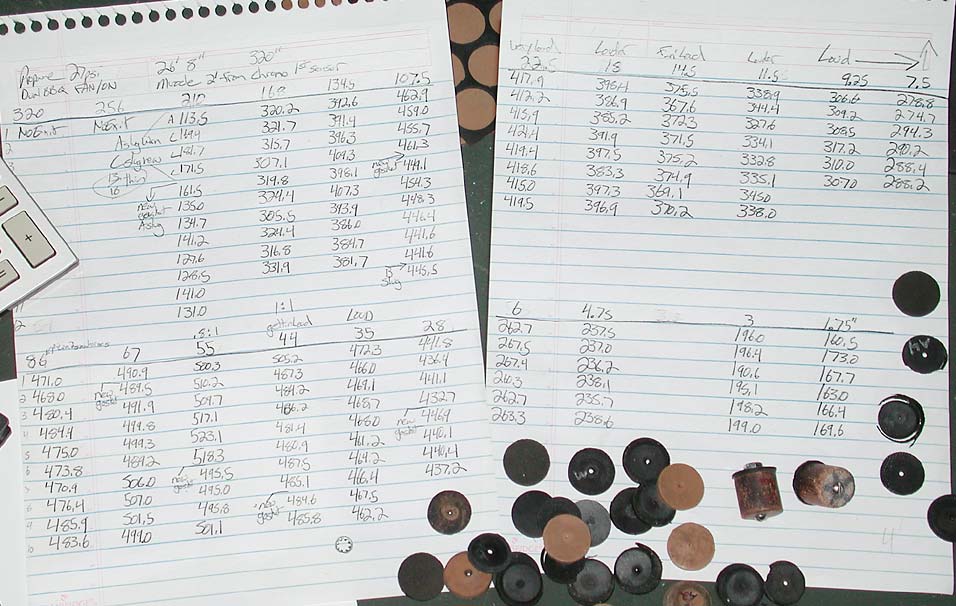 Propane 27psi 26" 8" 320"
FAN/ON Muzzle 2' from Chrono 1st sensor
320 256 210 168 134.5 107.5
1 NoExit NoExit A 113.5 320.2 392.6 462.9
2 Aslg 321.7 391.4 459.0
315.7 396.3 455.7
171.5 327.1 409.3 461.3
161.5 319.8 398.1 new gasket 449.1
new gasket 135.0 324.4 407.3 454.3
Aslg 134.7 305.5 393.9 448.3
141.2 324.4 386.0 446.4
127.6 316.8 384.7 441.6
128.5 331.9 381.7 441.6
141.0 B slug 445.5
131.0
.8:1 1:1 LOUD
86 67 55 44 35 28
1 471.0 490.9 500.3 505.2 472.3 441.8
2 468.0 new gasket 489.5 510.2 487.3 466.0 436.4
3 480.4 491.9 509.7 484.2 469.1 441.1
4 484.9 499.8 517.1 486.2 468.7 432.7
5 475.0 499.3 523.1 481.4 468.0 new gasket 446.9
6 473.8 489.2 518.3 480.9 461.2 440.1
470.9 506.0 new gasket 495.5 487.5 469.2 440.4
476.4 507.0 495.0 485.1 466.4 437.2
9 485.9 501.5 495.8 new gasket 484.6 467.5
10 483.6 499.0 501.1 485.8 462.2
very loud Louder Loud
22.5 18 14.5 11.5 9.25 7.5
417.9 398.4 375.5 338.9 306.6 278.8
412.2 386.9 367.6 344.4 309.2 274.7
415.9 385.2 372.3 327.6 308.5 294.3
421.4 391.9 371.5 334.1 317.2 290.2
419.4 397.5 375.2 332.8 310.0 288.4
418.6 383.3 374.9 335.1 307.0 288.2
415.0 397.3 369.1 345.0
419.5 396.9 370.2 338.0
6 4.75 3 1.75"
262.7 237.5 196.0 160.5
267.5 237.0 196.4 173.0
267.4 236.2 190.6 167.7
260.3 238.1 195.1 163.0
262.7 235.7 198.2 166.4
263.3 238.6 199.0 169.6
4